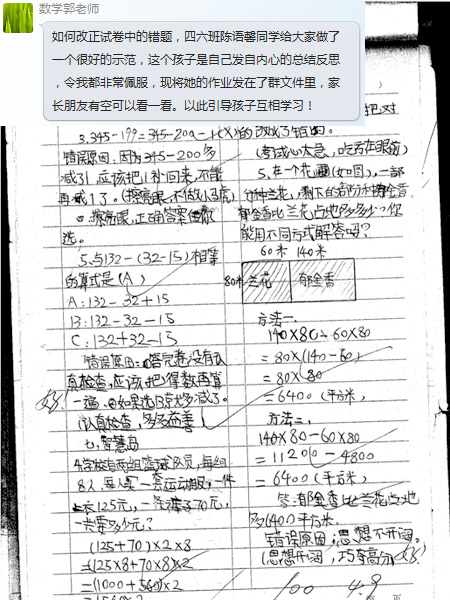 数学郭老师
如何改正试卷中的错题，四六班陈语馨同学给大家做了
一个很好的示范，这个孩子是自己发自内心的总结反思
，令我都非常佩服，现将她的作业发在了群文件里，家
长朋友有空可以看一看。以此引导孩子互相学习！
3.345-199=345-200-1(X)的改
错误原因：因为345-200多
减了1，应该把1补回来，不能
再减1了。
擦亮眼，正确答案
选。
5.与132-(32-15)相等
的算式是(A)
A：132-32+15
B：132-32-15
C：132+32-15
错误原因：答完卷没有认
真检查，应该把得数再算
一遍。
认真检查，多多益善
七、智慧岛
4.学校有两组篮球队员，每组
8人，
125元，一条裤子70元，
一共要多少元？
(125+70)×2×8
=(125×8+70×8)×2
=(1000+560)×2
把对
(考试心太急，吃亏在眼前)
5.在一个花圃(如图)，一部
分种兰花，剩下的部分种郁金香
郁金香比兰花占地多多少？你
能用不同方式解答吗？
60米 140米
80米 兰花 郁金香
方法一：
140×80-60×80
=80×(140-60)
=80×80
=6400(平方米)
方法二：
140×80-60×80
=11200-4800
=6400(平方米)
答：郁金香比兰花占地
多6400平方米。
错误原因：思想不开阔
(思想开阔，巧夺高分)
100 4.9